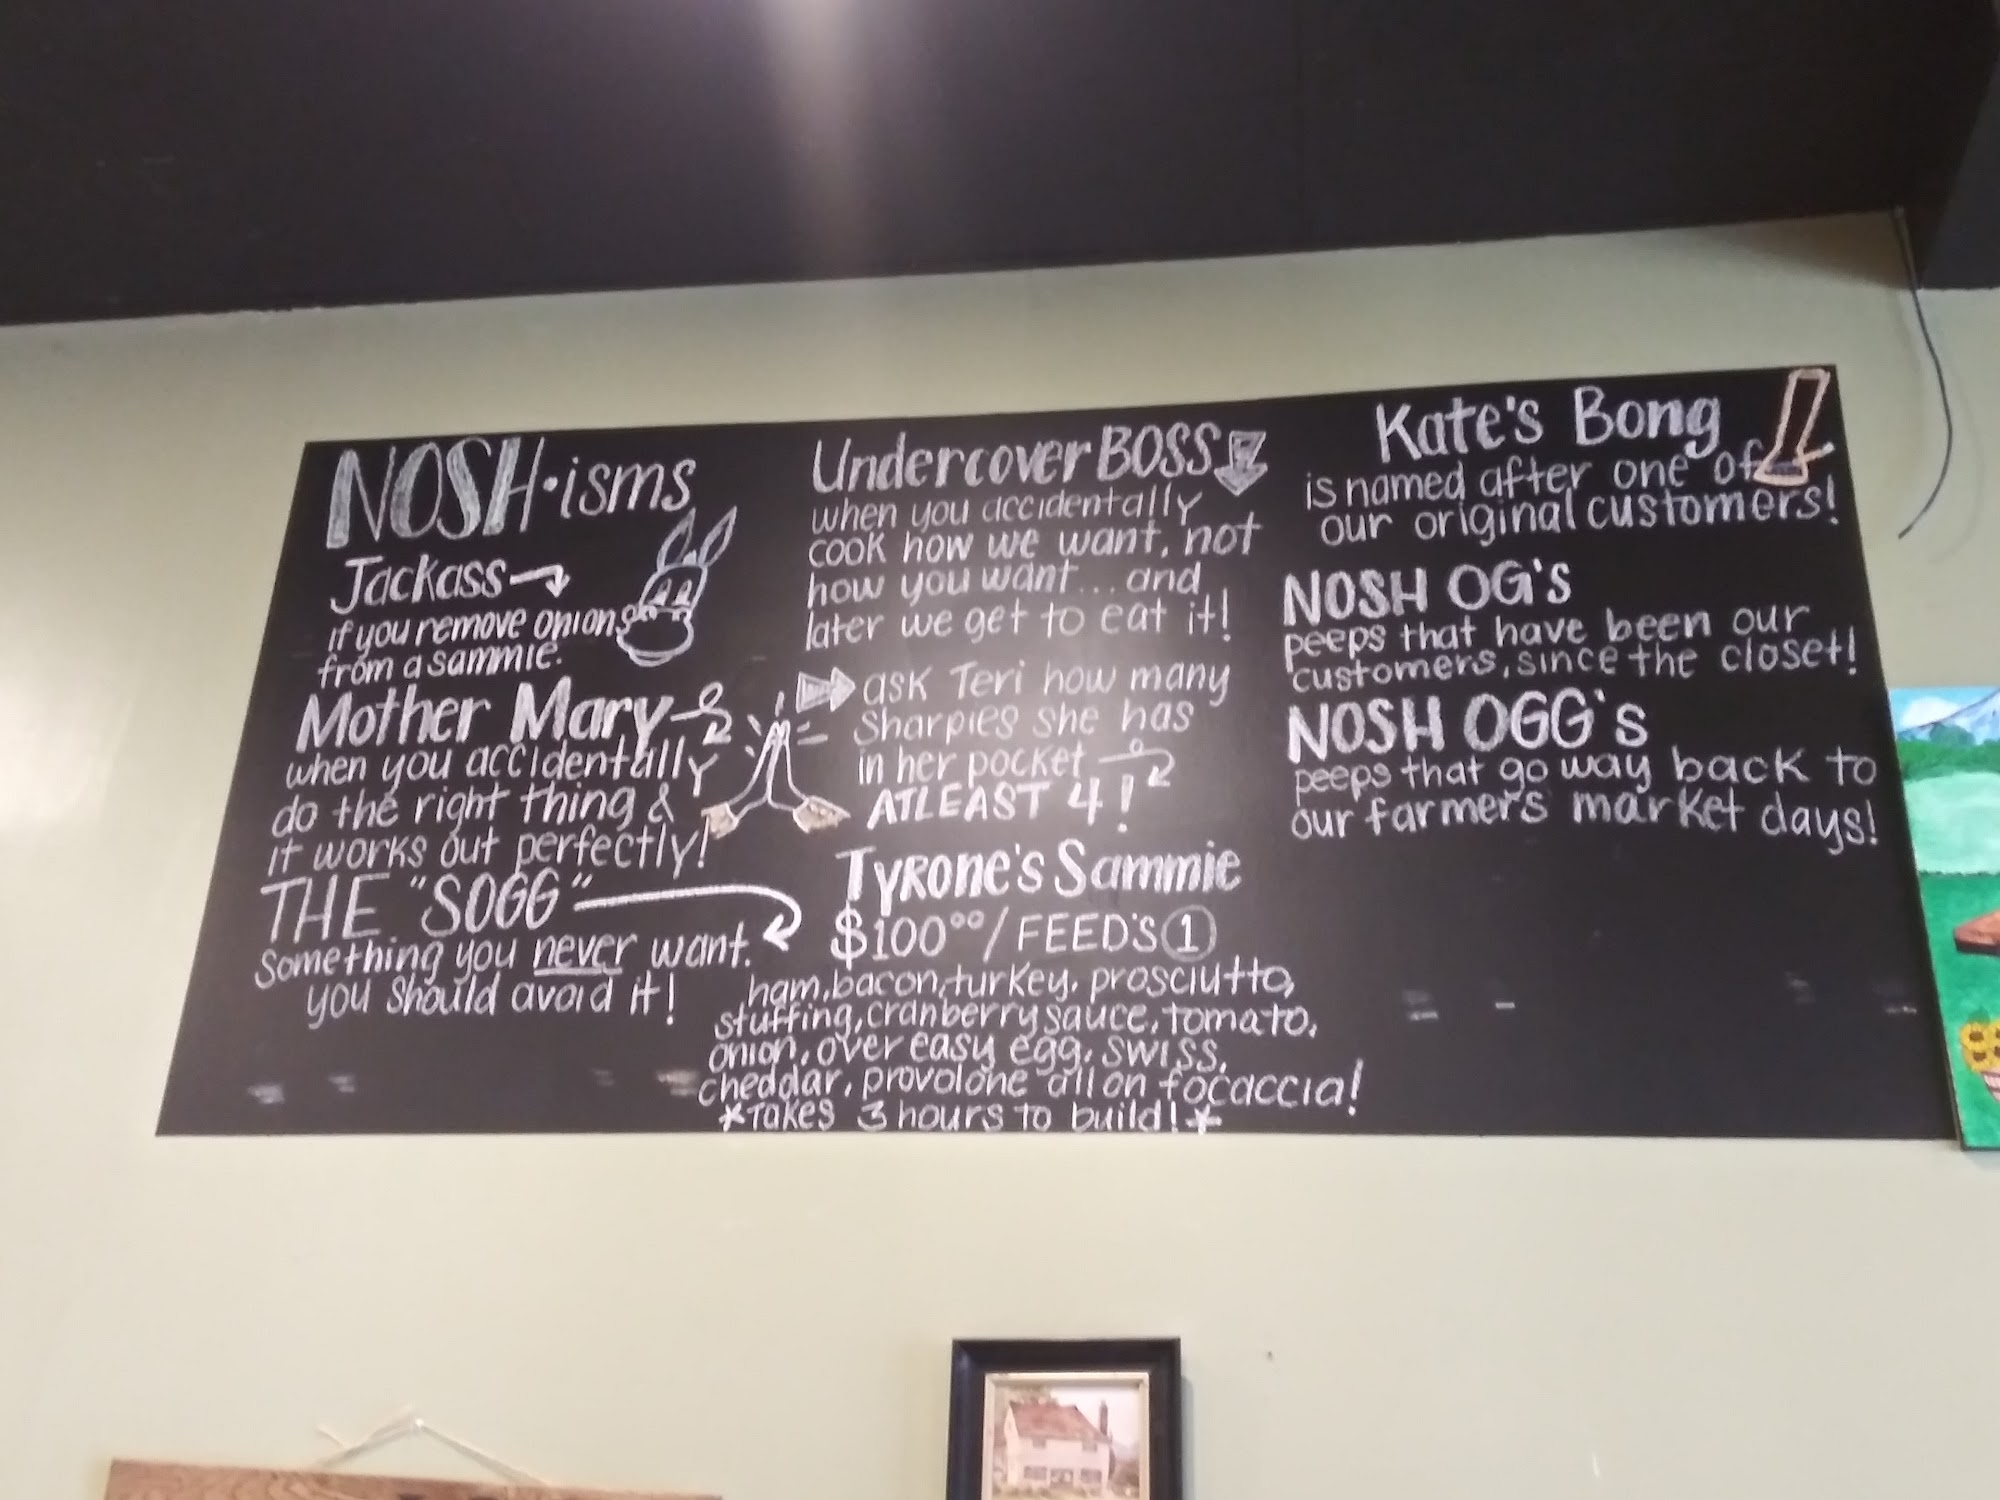 NOSH·isms
Jackass
if you remove onions
from a sammie.
Mother Mary
when you accidentally
do the right thing &
it works out perfectly!
THE "SOGG"
Something you never want.
you should avoid it!
Undercover BOSS
when you accidentally
cook how we want, not
how you want... and
later we get to eat it!
ask Teri how many
Sharpies she has
in her pocket
ATLEAST 4!
Tyrone's Sammie
$100⁰⁰/FEED'S 1
ham, bacon, turkey, prosciutto,
stuffing, cranberry sauce, tomato,
onion, over easy egg, swiss,
cheddar, provolone all on focaccia!
*Takes 3 hours to build!*
Kate's Bong
is named after one of
our original customers!
NOSH OG's
peeps that have been our
customers, since the closet!
NOSH OGG's
peeps that go way back to
our farmer's market days!